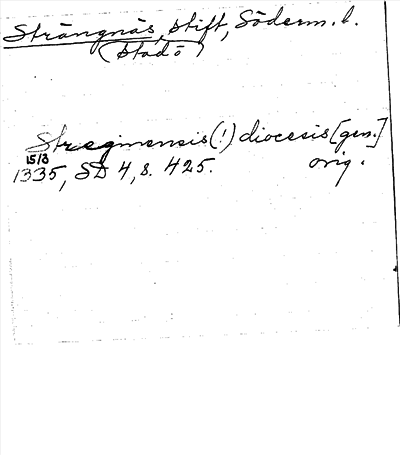 Strängnäs, stift, Söderm. l.
(stad ö)
Stregimensis(!) diocesis [gen.]
15/3
1335, SD 4, s. 425. orig.